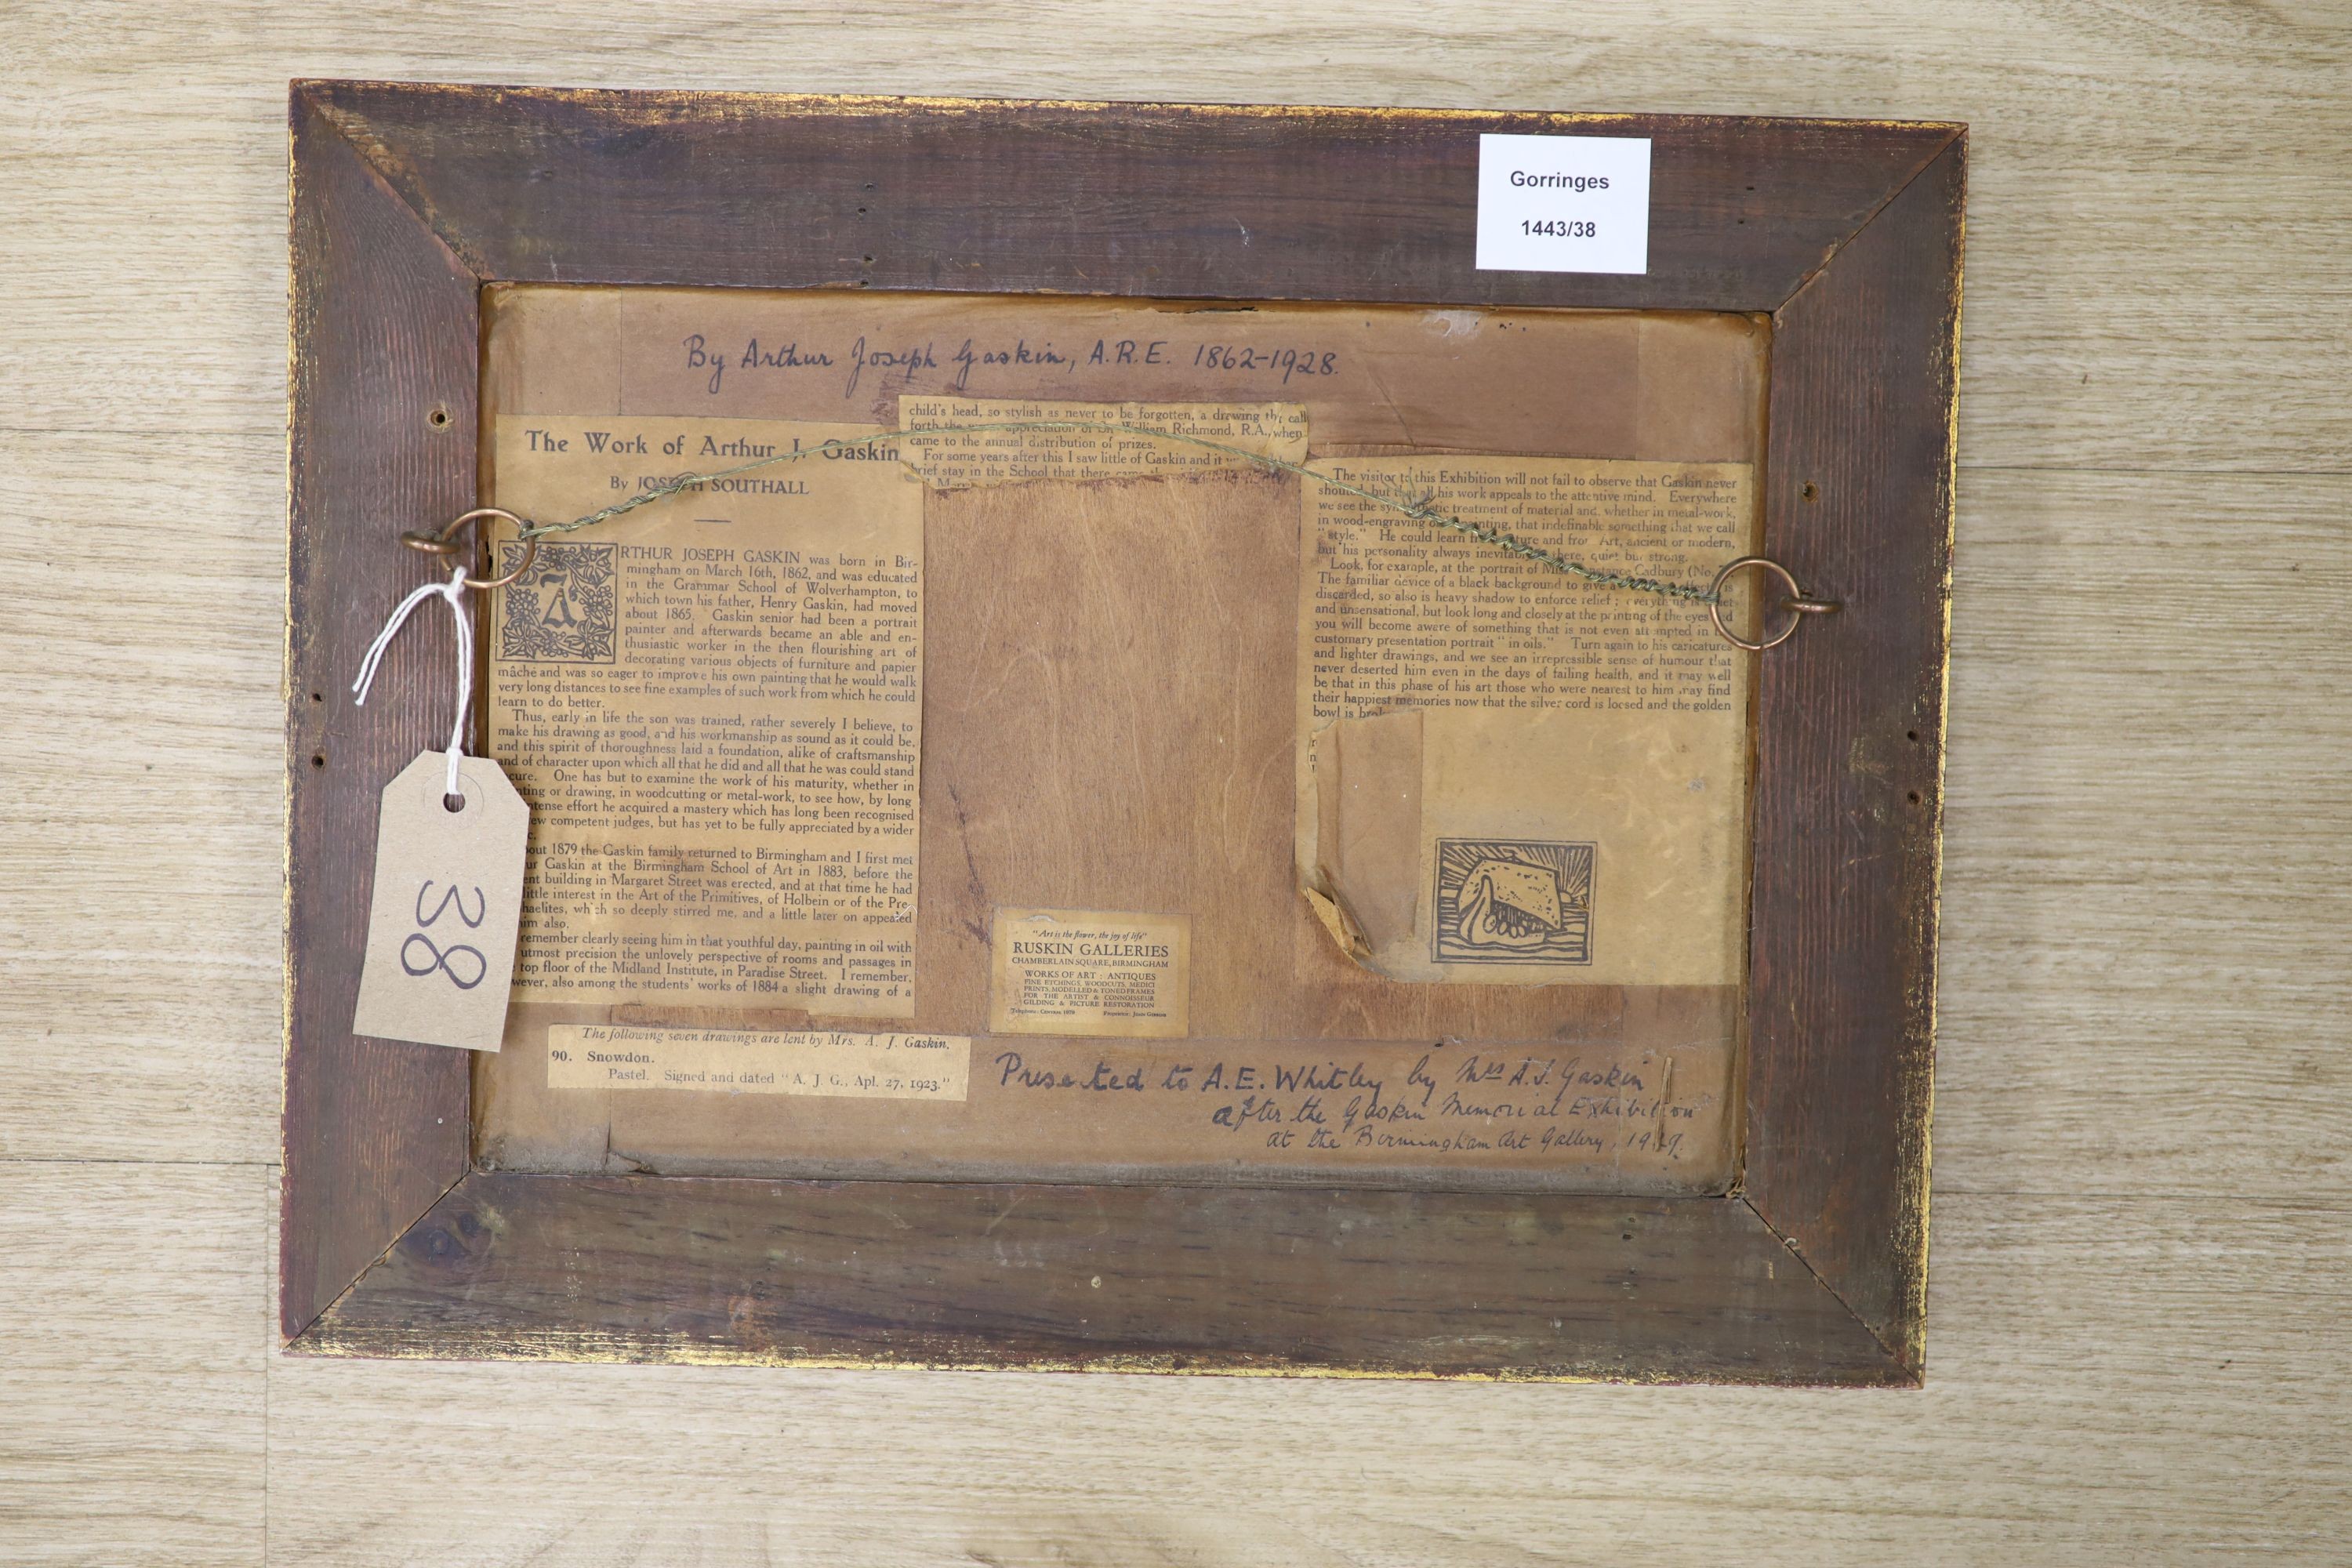 Gorringes
1443/38
By Arthur Joseph Gaskin, A.R.E. 1862-1928.
The Work of Arthur J. Gaskin
By JOSEPH SOUTHALL
ARTHUR JOSEPH GASKIN was born in Bir-
mingham on March 16th, 1862, and was educated
in the Grammar School of Wolverhampton, to
which town his father, Henry Gaskin, had moved
about 1865. Gaskin senior had been a portrait
painter and afterwards became an able and en-
thusiastic worker in the then flourishing art of
decorating various objects of furniture and papier
mâché and was so eager to improve his own painting that he would walk
very long distances to see fine examples of such work from which he could
learn to do better.
Thus, early in life the son was trained, rather severely I believe, to
make his drawing as good, and his workmanship as sound as it could be,
and this spirit of thoroughness laid a foundation, alike of craftsmanship
and of character upon which all that he did and all that he was could stand
cure. One has but to examine the work of his maturity, whether in
nting or drawing, in woodcutting or metal-work, to see how, by long
ntense effort he acquired a mastery which has long been recognised
ew competent judges, but has yet to be fully appreciated by a wider
c.
out 1879 the Gaskin family returned to Birmingham and I first met
ur Gaskin at the Birmingham School of Art in 1883, before the
ent building in Margaret Street was erected, and at that time he had
little interest in the Art of the Primitives, of Holbein or of the Pre-
haelites, which so deeply stirred me, and a little later on appealed
him also.
remember clearly seeing him in that youthful day, painting in oil with
utmost precision the unlovely perspective of rooms and passages in
top floor of the Midland Institute, in Paradise Street. I remember,
wever, also among the students' works of 1884 a slight drawing of a
child's head, so stylish as never to be forgotten, a drawing th call
forth the appreciation of Sir William Richmond, R.A., when
came to the annual distribution of prizes.
For some years after this I saw little of Gaskin and it
brief stay in the School that there came
The visitor to this Exhibition will not fail to observe that Gaskin never
shouted but that all his work appeals to the attentive mind. Everywhere
we see the sympathetic treatment of material and, whether in metal-work,
in wood-engraving or painting, that indefinable something that we call
"style." He could learn from Nature and from Art, ancient or modern,
but his personality always inevitably there, quiet but strong.
Look, for example, at the portrait of Miss Constance Cadbury (No.
The familiar device of a black background to give a is
discarded, so also is heavy shadow to enforce relief; everything is quiet
and unsensational, but look long and closely at the painting of the eyes and
you will become aware of something that is not even attempted in
customary presentation portrait "in oils." Turn again to his caricatures
and lighter drawings, and we see an irrepressible sense of humour that
never deserted him even in the days of failing health, and it may well
be that in this phase of his art those who were nearest to him may find
their happiest memories now that the silver cord is loosed and the golden
bowl is
38
"Art is the flower, the joy of life"
RUSKIN GALLERIES
CHAMBERLAIN SQUARE, BIRMINGHAM
WORKS OF ART : ANTIQUES
FINE ETCHINGS, WOODCUTS, MEDICI
PRINTS, MODELLED & TONED FRAMES
FOR THE ARTIST & CONNOISSEUR
GILDING & PICTURE RESTORATION
Telephone: Central 1070 Proprietor: John Gibbins
The following seven drawings are lent by Mrs. A. J. Gaskin.
90. Snowdon.
Pastel. Signed and dated "A. J. G., Apl. 27, 1923."
Presented to A.E. Whitley by Mrs A.J. Gaskin
after the Gaskin Memorial Exhibition
at the Birmingham Art Gallery, 1929.